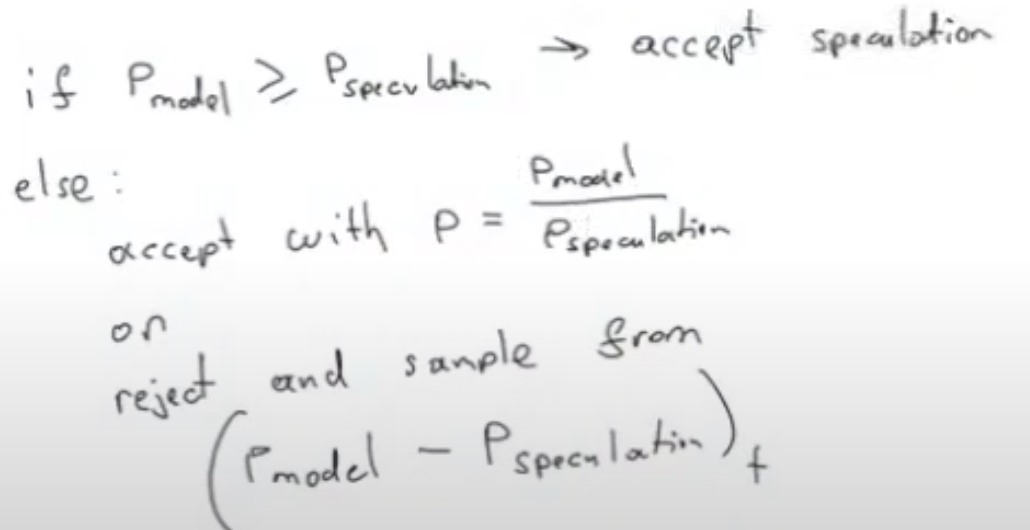 if P_model ≥ P_speculation → accept speculation
else :
accept with p = P_model / P_speculation
or
reject and sample from
(P_model − P_speculation)_+